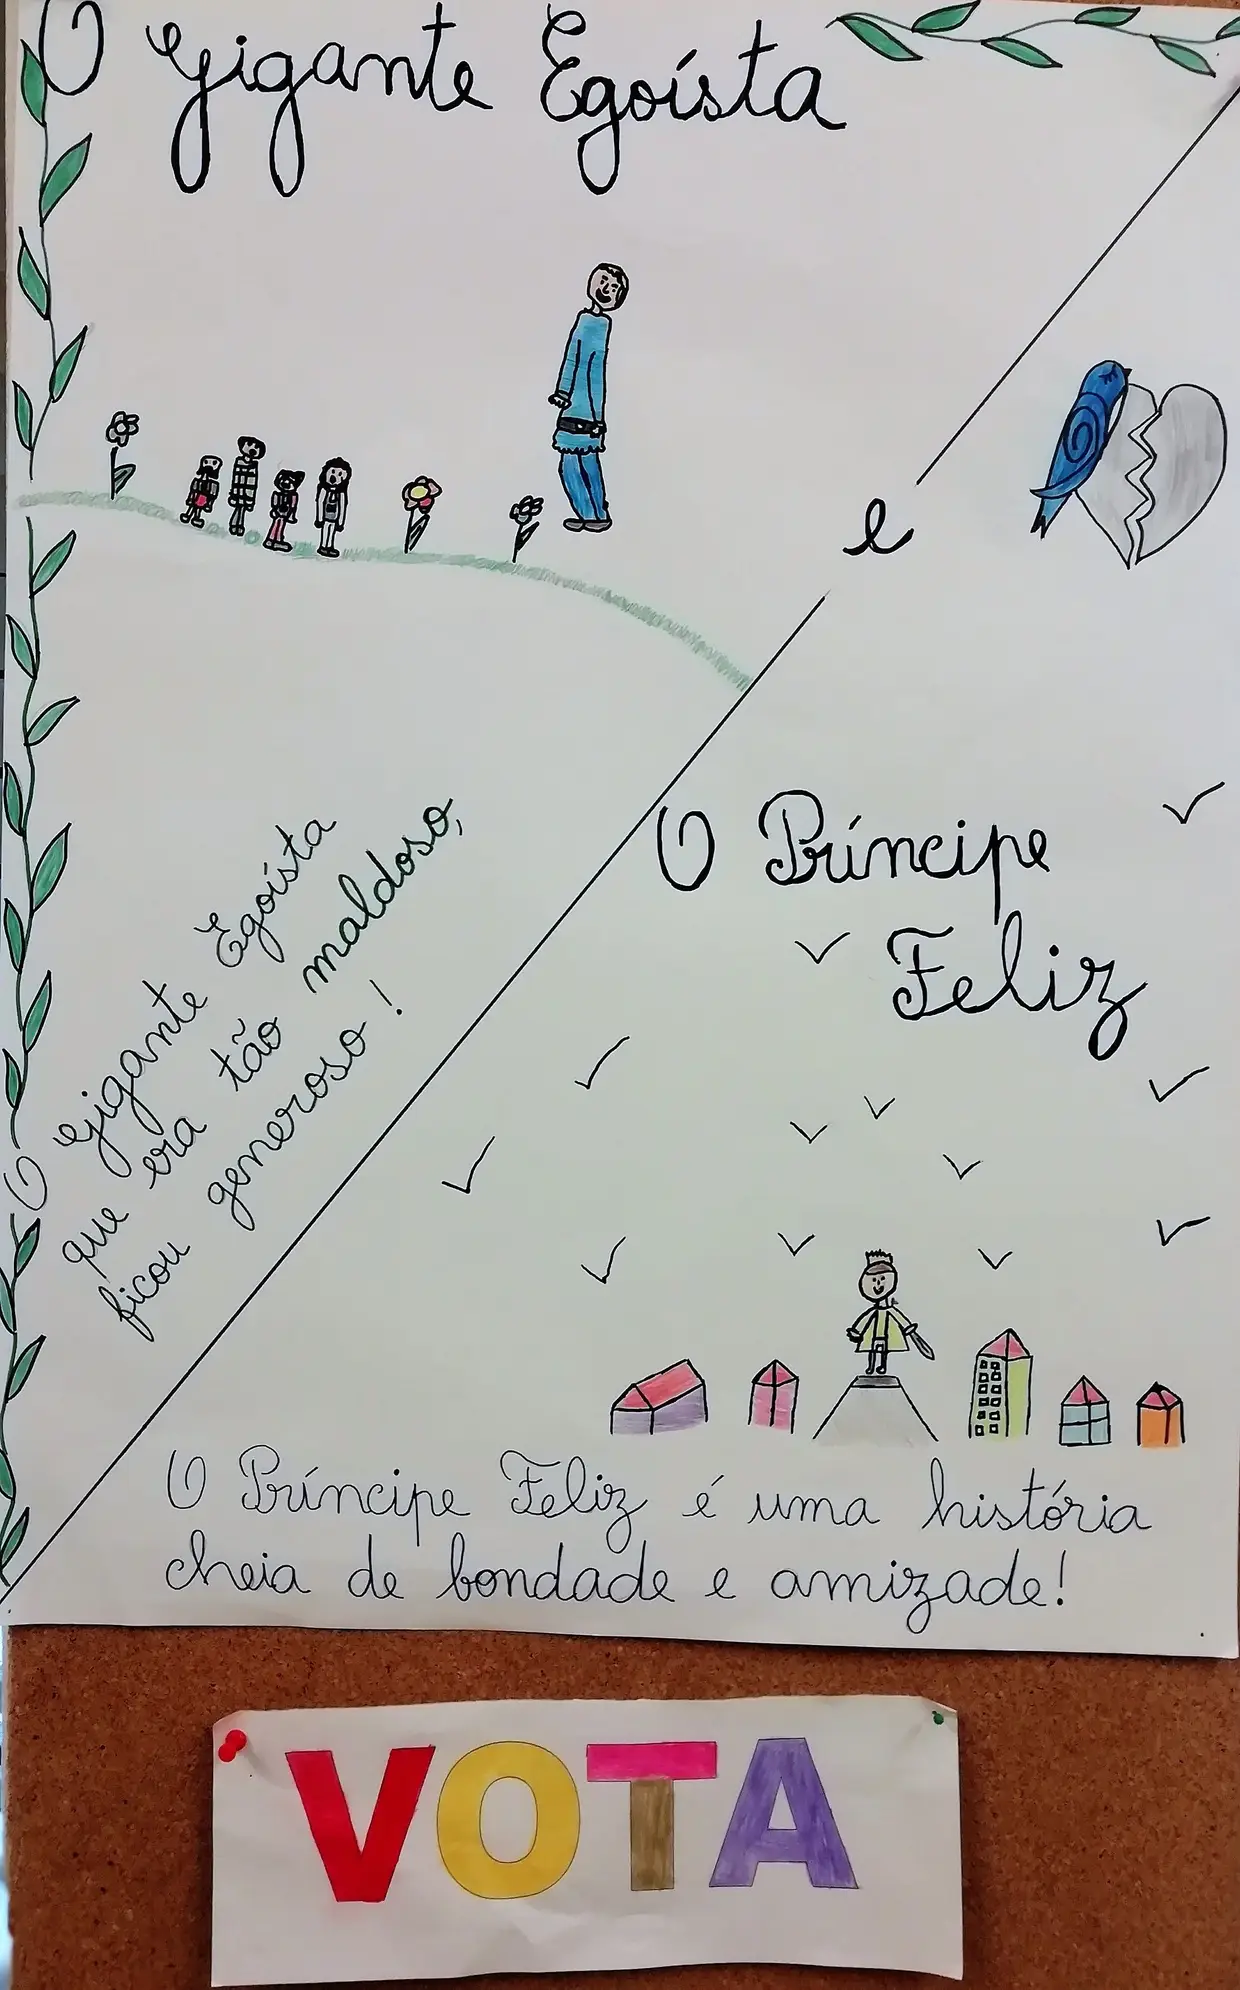 O Gigante Egoísta
e
O Príncipe
Feliz
O Gigante Egoísta
que era tão maldoso,
ficou generoso!
O Príncipe Feliz é uma história
cheia de bondade e amizade!
VOTA